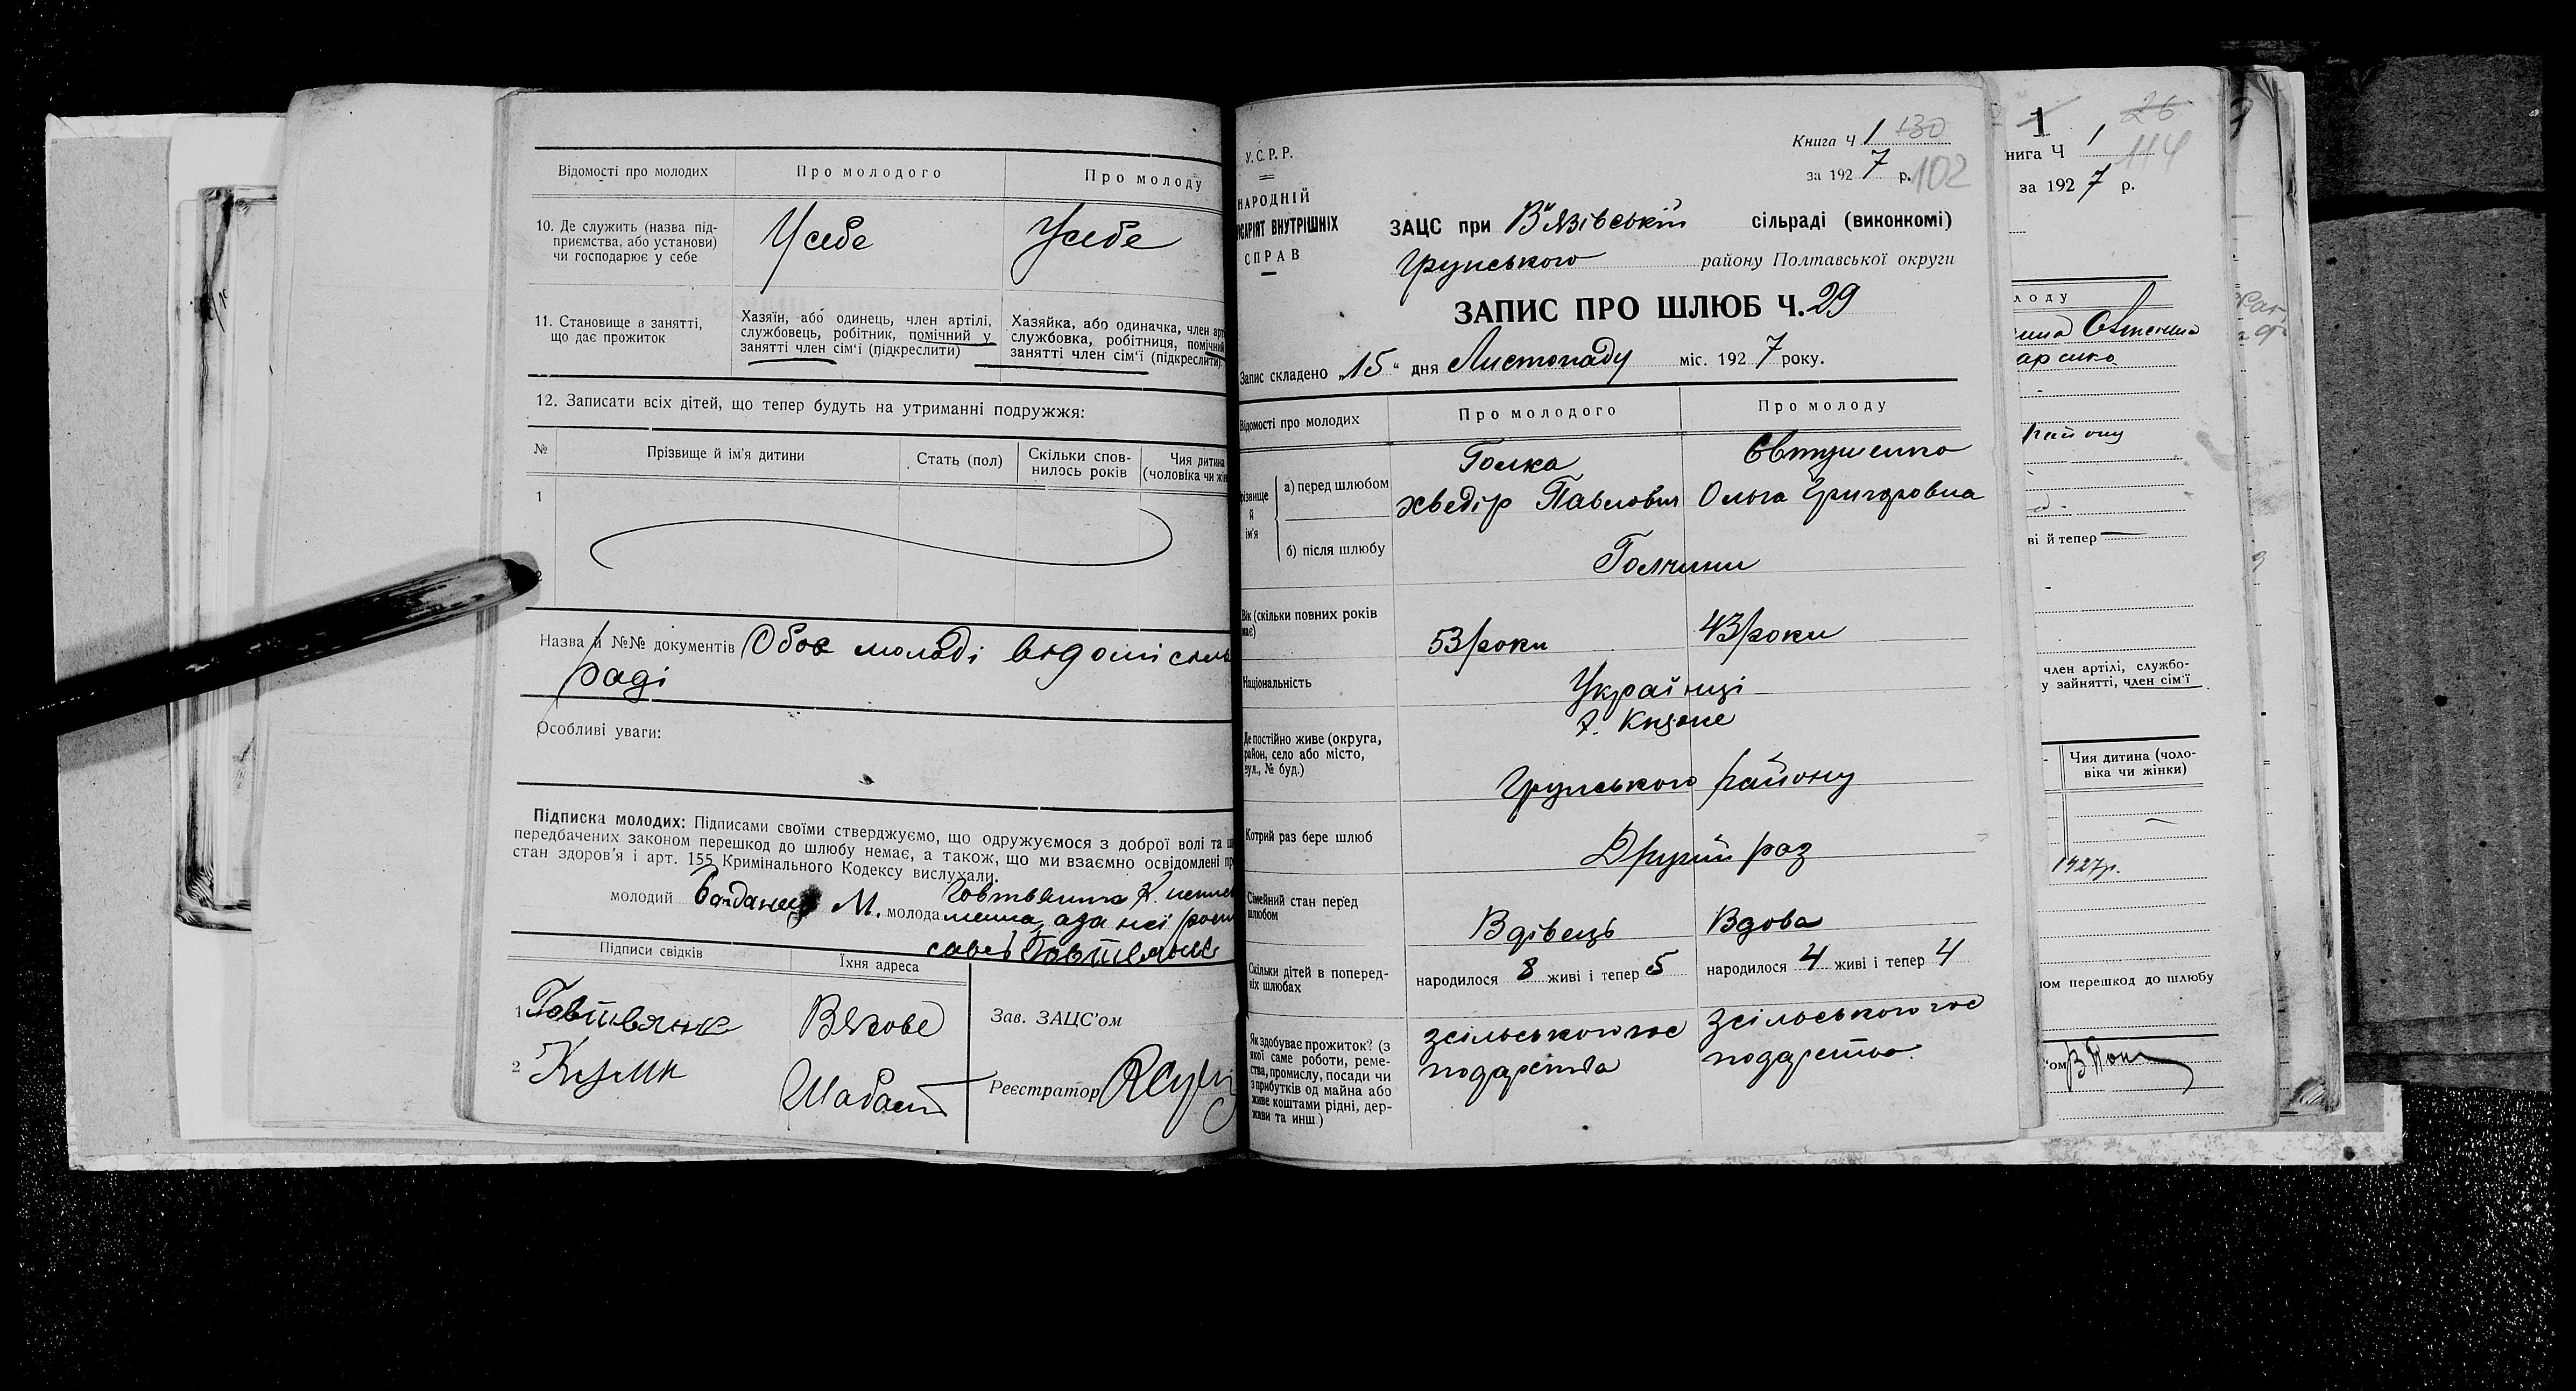 Відомості про молодих
Про молодого
Про молоду
10. Де служить (назва під-
приємства, або установи)
чи господарює у себе
У себе
У себе
11. Становище в занятті,
що дає прожиток
Хазяїн, або одинець, член артілі,
службовець, робітник, помічний у
занятті член сім'ї (підкреслити)
Хазяйка, або одиначка, член
службовка, робітниця,
занятті член сім'ї (підкреслити)
12. Записати всіх дітей, що тепер будуть на утриманні подружжя:
№
Прізвище й ім'я дитини
Стать (пол)
Скільки спов-
нилось років
Чия дитина
(чоловіка чи
1
2
Назва й №№ документів Обоє молоді відомі
раді
Особливі уваги:
Підписка молодих: Підписами своїми стверджуємо, що одружуємося з доброї волі та
передбачених законом перешкод до шлюбу немає, а також, що ми взаємно освідомлені
стан здоров'я і арт. 155 Кримінального Кодексу вислухали.
молодий М. молода
Підписи свідків
Їхня адреса
1
2
Зав. ЗАЦС'ом
Реєстратор
У.С.Р.Р.
НАРОДНІЙ
ВНУТРІШНІХ
СПРАВ
Книга Ч 1 130
за 1927 р. 102
ЗАЦС при В'язівській сільраді (виконкомі)
Грунського району Полтавської округи
ЗАПИС ПРО ШЛЮБ Ч. 29
Запис складено „15" дня Листопаду міс. 1927 року.
Відомості про молодих
Про молодого
Про молоду
й
ім'я
а) перед шлюбом
Голка
Хведір Павлович
Євтушенко
Ольга Григоровна
б) після шлюбу
Голчини
Вік (скільки повних років
53 роки
43 роки
Національність
Українці
Де постійно живе (округа,
район, село або місто,
вул., № буд.)
Грунського району
Котрий раз бере шлюб
Другий раз
Сімейний стан перед
шлюбом
Вдівець
Вдова
Скільки дітей в поперед-
ніх шлюбах
народилося 8 живі і тепер 5
народилося 4 живі і тепер 4
Як здобуває прожиток? (з
якої саме роботи, реме-
ства, промислу, посади чи
з прибутків од майна або
живе коштами рідні, дер-
жави та инш)
зсільського гос
подарства
зсільського гос
подарства
1
26
114
нига Ч 1
за 1927 р.
лоду
району
ві й тепер
член артілі, службо-
у зайнятті, член сім'ї
Чия дитина (чоло-
віка чи жінки)
1927р.
ом перешкод до шлюбу